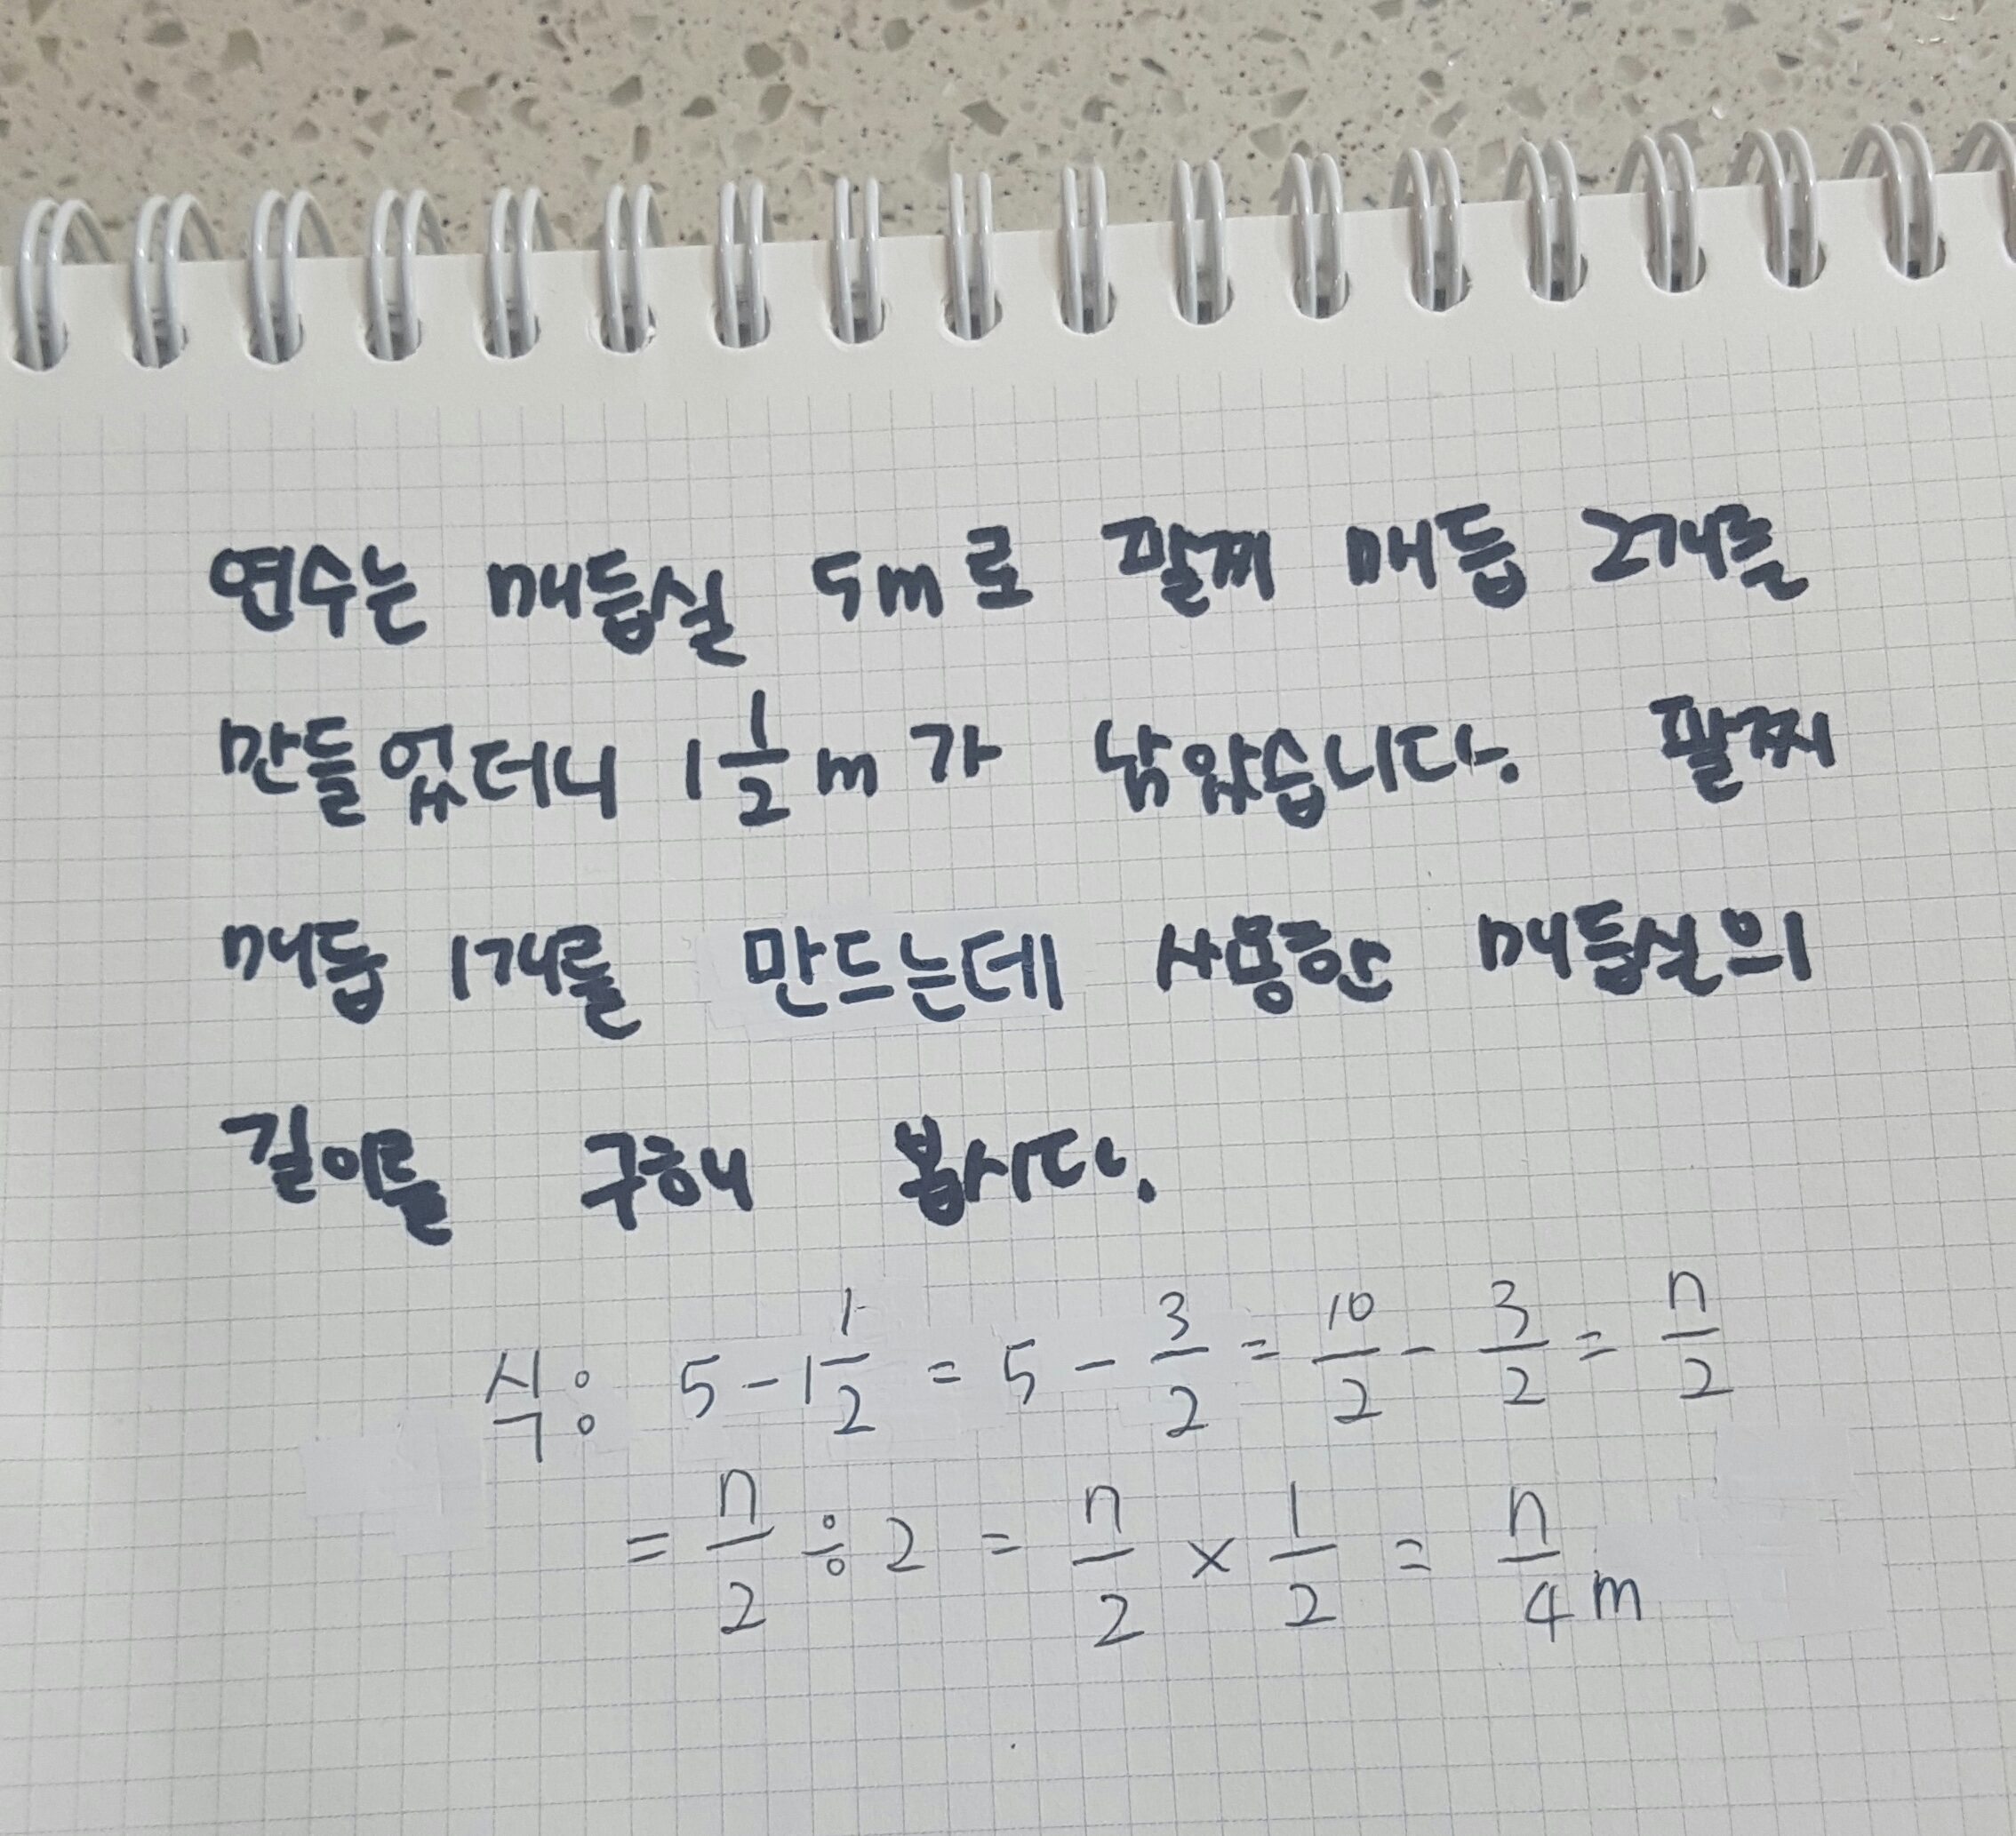 연수는 매듭실 5m로 팔찌 매듭 2개를
만들었더니 1 1/2 m가 남았습니다. 팔찌
매듭 1개를 만드는데 사용한 매듭실의
길이를 구해 봅시다.
식: 5 - 1 1/2 = 5 - 3/2 = 10/2 - 3/2 = 7/2
= 7/2 ÷ 2 = 7/2 × 1/2 = 7/4 m